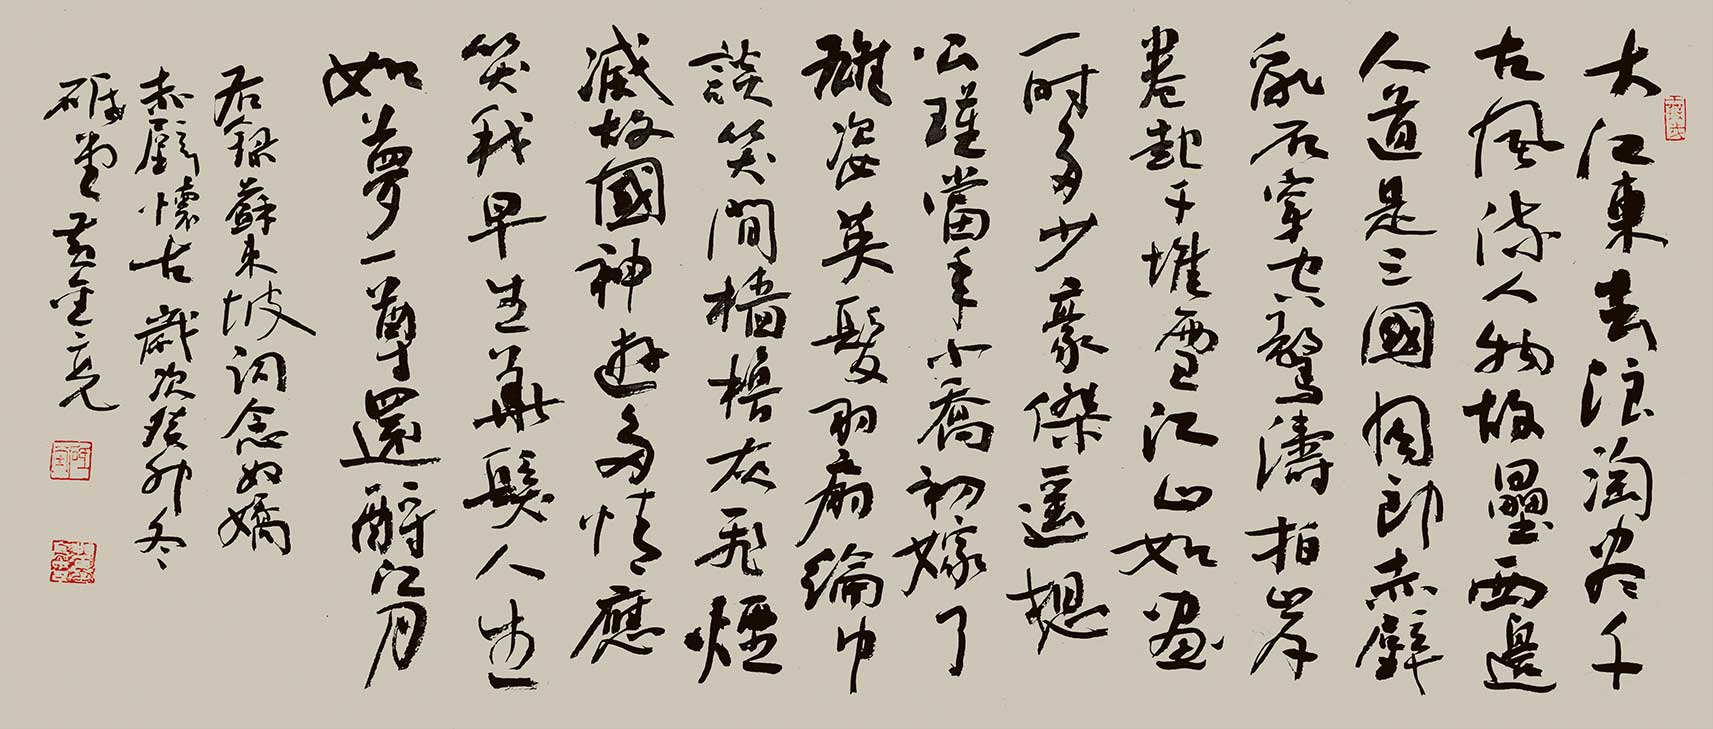 大江東去浪淘盡千
古風流人物故壘西邊
人道是三國周郎赤壁
亂石穿空驚濤拍岸
卷起千堆雪江山如畫
一時多少豪傑遥想
公瑾當年小喬初嫁了
雄姿英發羽扇綸巾
談笑間檣櫓灰飛煙
滅故國神遊多情應
笑我早生華髮人生
如夢一尊還酹江月
右録蘇東坡詞念奴嬌
赤壁懷古歲次癸卯冬
堂黄金亮